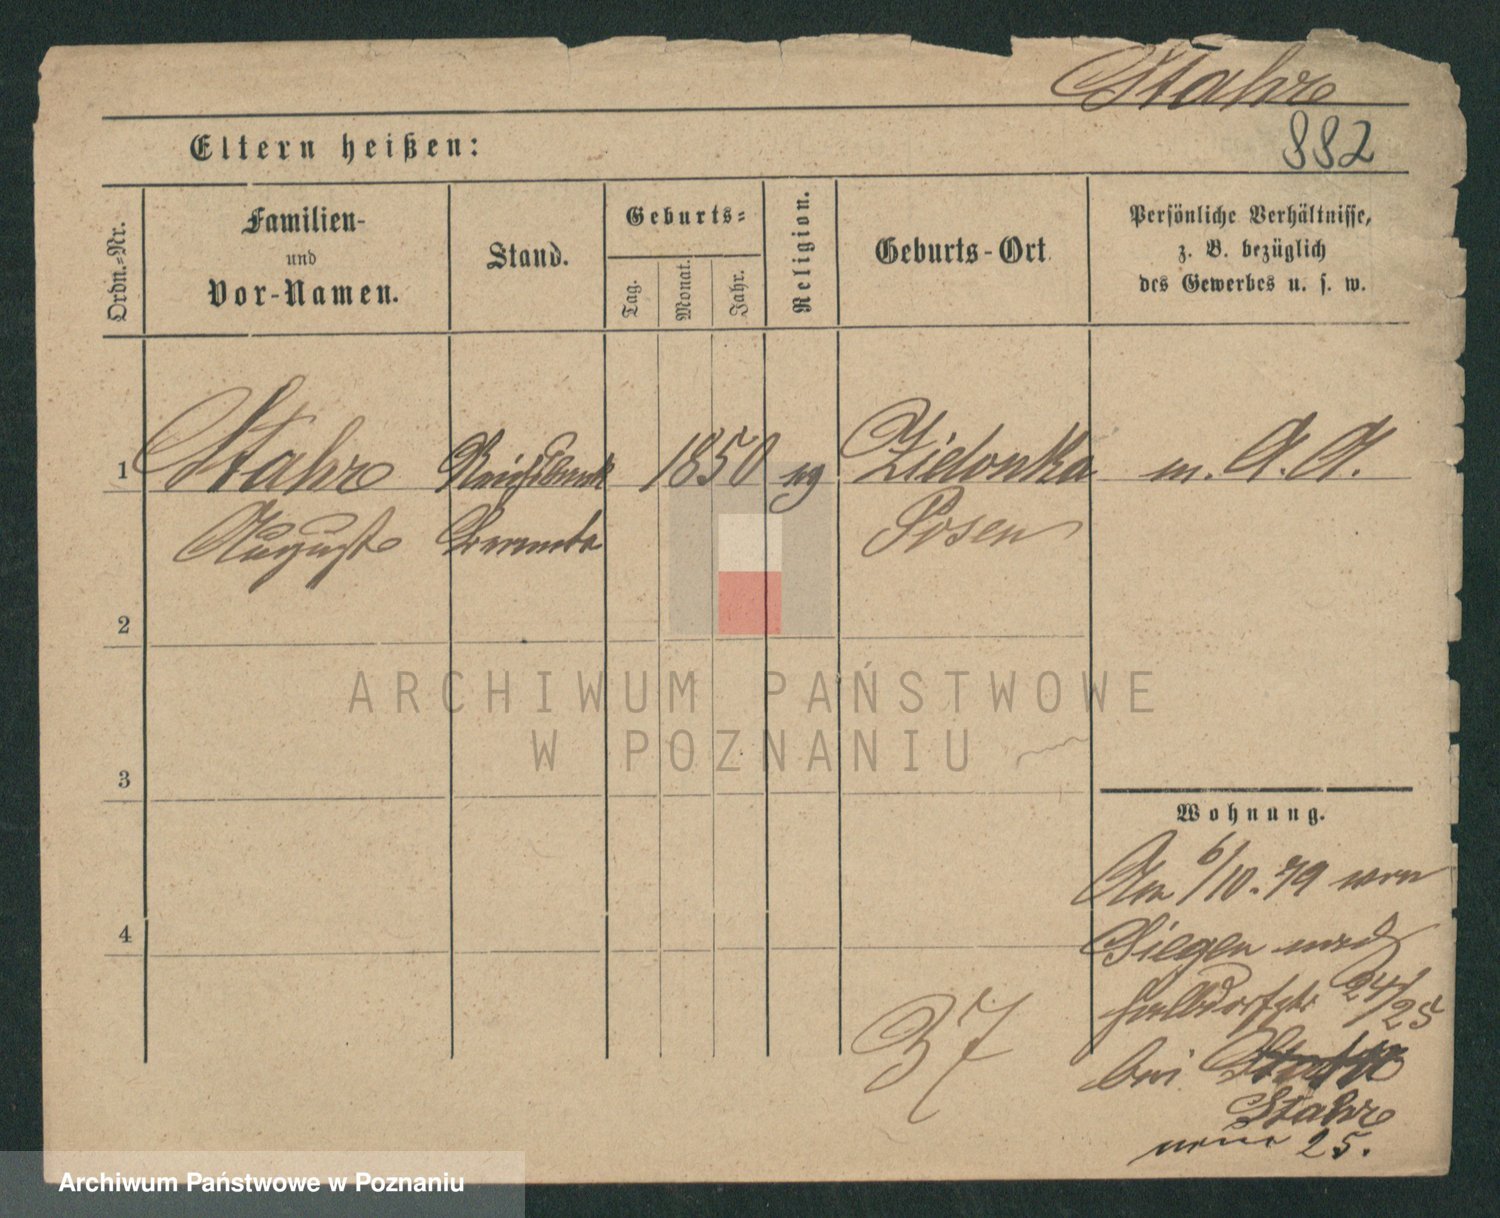 Stahr
882
Eltern heißen:
Ordn.-Nr.
Familien-
und
Vor-Namen.
Stand.
Geburts-
Tag.
Monat.
Jahr.
Religion.
Geburts-Ort
Persönliche Verhältnisse,
z. B. bezüglich
des Gewerbes u. s. w.
1 Stahr Reichsbank 1850 ev Zielonka m. A. A.
August Beamter Posen
2
ARCHIWUM PAŃSTWOWE
W POZNANIU
3
Wohnung.
Am 6/10.79 von
Siegen nach
Halbdorfstr 24/25
4
37
bei
Stahr
25.
Archiwum Państwowe w Poznaniu